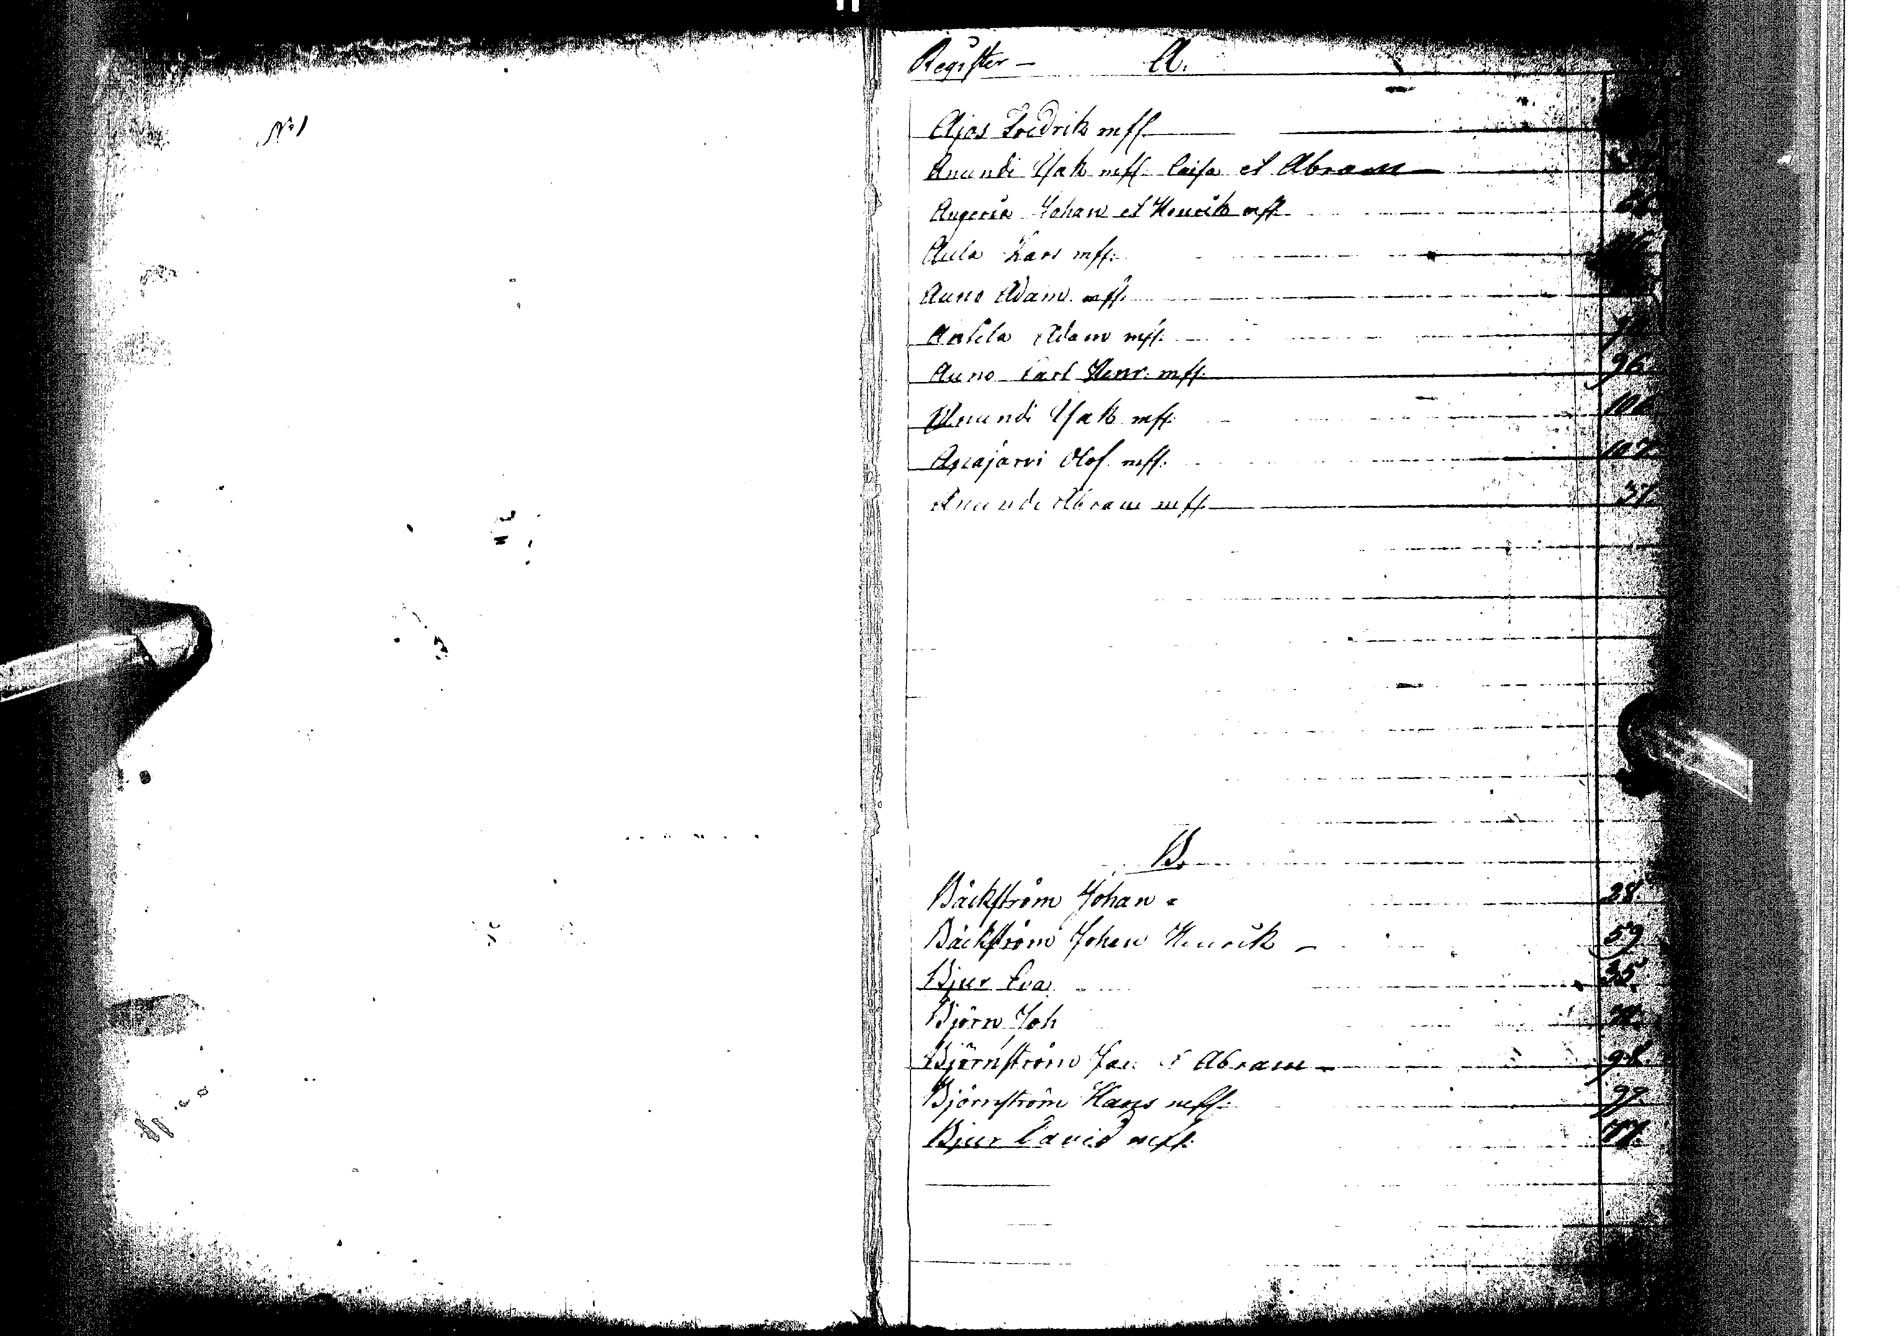 No 1
Register – A.
Ajos Fredrik mff.
Anundi Isak mff. Caisa et Abram
Johan et Henrik mff. 61
Aula Lars mff.
Auno Adam mff.
Anttila Adam mff.
Auno Carl Henr. mff. 96.
Anundi Isak mff. 106
Apiajärvi Olof mff. 107.
Anundi Abram mff. 37.
B.
Bäckström Johan 28.
Bäckström Johan Henrik – 59
Bjur Eva 35.
Björn Joh
Björnström Abram – 98.
Björnström Hans mff. 97.
Bjur David mff. 77.